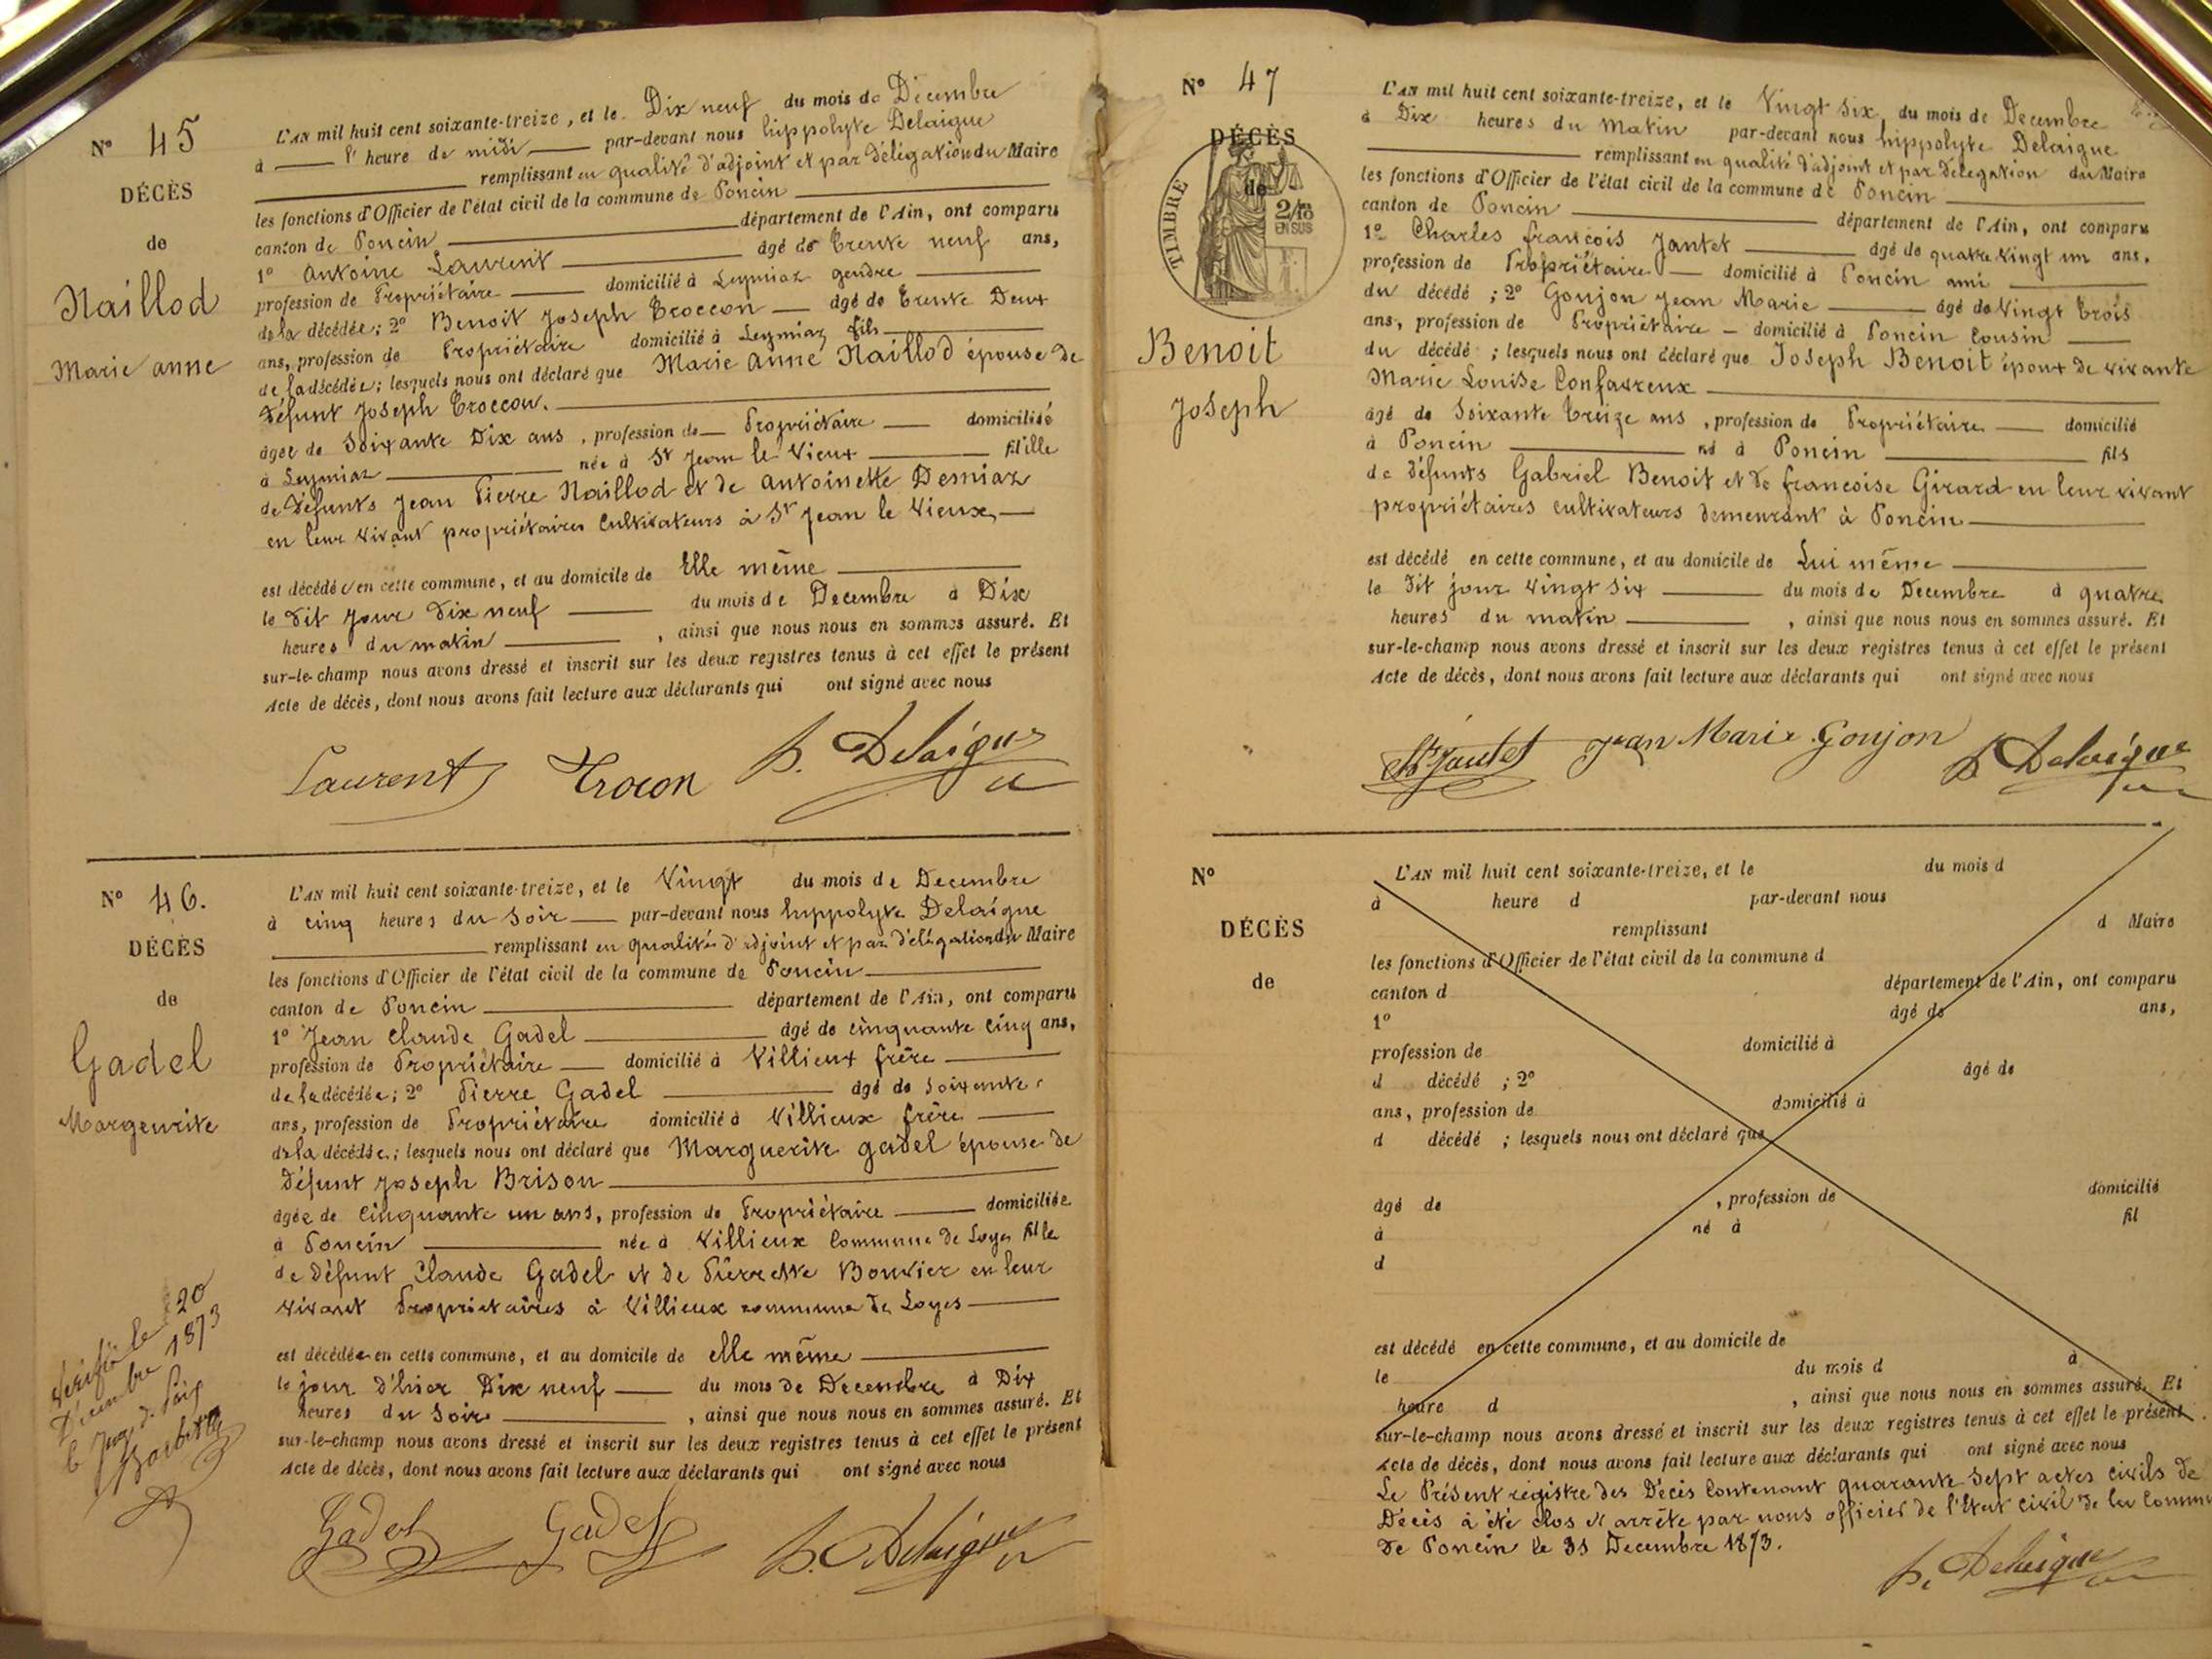 N° 45
DÉCÈS
de
Naillod
Marie anne
L'AN mil huit cent soixante-treize, et le Dix neuf du mois de Décembre
à l'heure de midi par-devant nous hippolyte Delaigue
remplissant en qualité d'adjoint et par délégation du Maire
les fonctions d'Officier de l'état civil de la commune de Poncin
canton de Poncin département de l'Ain, ont comparu
1° Antoine Laurent âgé de trente neuf ans,
profession de Propriétaire domicilié à Leymiaz gendre
de la décédée; 2° Benoit Joseph Troccon âgé de trente Deux
ans, profession de Propriétaire domicilié à Leymiaz fils
de la décédée; lesquels nous ont déclaré que Marie Anne Naillod épouse de
défunt Joseph Troccon.
âgée de Soixante Dix ans, profession de Propriétaire domiciliée
à Leymiaz née à St Jean le Vieux fille
de Défunts Jean Pierre Naillod et de Antoinette Desniaz
en leur vivant propriétaires Cultivateurs à St Jean le Vieux,
est décédée en cette commune, et au domicile de Elle même
le dit jour dix neuf du mois de Decembre à Dix
heures du matin, ainsi que nous nous en sommes assuré. Et
sur-le-champ nous avons dressé et inscrit sur les deux registres tenus à cet effet le présent
Acte de décès, dont nous avons fait lecture aux déclarants qui ont signé avec nous
Laurent Trocon h. Delaigue
N° 46.
DÉCÈS
de
Gadel
Margeurite
L'AN mil huit cent soixante-treize, et le Vingt du mois de Decembre
à cinq heures du Soir par-devant nous hippolyte Delaigue
remplissant en qualité d'adjoint et par délégation du Maire
les fonctions d'Officier de l'état civil de la commune de Poncin
canton de Poncin département de l'Ain, ont comparu
1° Jean Claude Gadel âgé de cinquante cinq ans,
profession de Propriétaire domicilié à Villieux frère
de la décédée; 2° Pierre Gadel âgé de soixante
ans, profession de Propriétaire domicilié à Villieux frère
de la décédée; lesquels nous ont déclaré que Marguerite gadel épouse de
Défunt Joseph Brison
âgée de Cinquante un ans, profession de Propriétaire domiciliée
à Poncin née à Villieux Commune de Loyes fille
de Défunt Claude Gadel et de Pierrette Bouvier en leur
vivant Propriétaires à Villieux commune de Loyes
est décédée en cette commune, et au domicile de elle même
le jour d'hier Dix neuf du mois de Decembre à Dix
heures du Soir, ainsi que nous nous en sommes assuré. Et
sur-le-champ nous avons dressé et inscrit sur les deux registres tenus à cet effet le présent
Acte de décès, dont nous avons fait lecture aux déclarants qui ont signé avec nous
Gadel Gadel h. Delaigue
Verifié le 20
Décembre 1873
le Juge de Paix
N° 47
DÉCÈS
de
TIMBRE
2/10
EN SUS
Benoit
Joseph
L'AN mil huit cent soixante-treize, et le Vingt six du mois de Decembre
à Dix heures du Matin par-devant nous hippolyte Delaigue
remplissant en qualité d'adjoint et par délégation du Maire
les fonctions d'Officier de l'état civil de la commune de Poncin
canton de Poncin département de l'Ain, ont comparu
1° Charles francois Jantet âgé de quatre Vingt un ans,
profession de Propriétaire domicilié à Poncin ami
du décédé; 2° Goujon Jean Marie âgé de Vingt trois
ans, profession de Propriétaire domicilié à Poncin Cousin
du décédé; lesquels nous ont déclaré que Joseph Benoit époux de vivante
Marie Louise Confavreux
âgé de Soixante treize ans, profession de Propriétaire domicilié
à Poncin né à Poncin fils
de défunts Gabriel Benoit et de francoise Girard en leur vivant
propriétaires cultivateurs demeurant à Poncin
est décédé en cette commune, et au domicile de Lui même
le dit jour vingt six du mois de Decembre à quatre
heures du matin, ainsi que nous nous en sommes assuré. Et
sur-le-champ nous avons dressé et inscrit sur les deux registres tenus à cet effet le présent
Acte de décès, dont nous avons fait lecture aux déclarants qui ont signé avec nous
Jantet Jean Marie Goujon h Delaigue
N°
DÉCÈS
de
L'AN mil huit cent soixante-treize, et le du mois d
à heure d par-devant nous
remplissant d Maire
les fonctions d'Officier de l'état civil de la commune d
canton d département de l'Ain, ont comparu
1° âgé de ans,
profession de domicilié à
d décédé ; 2° âgé de
ans, profession de domicilié à
d décédé ; lesquels nous ont déclaré que
âgé de , profession de domicilié
à né à fil
d
est décédé en cette commune, et au domicile de
le du mois d à
heure d , ainsi que nous nous en sommes assuré. Et
sur-le-champ nous avons dressé et inscrit sur les deux registres tenus à cet effet le présent
Acte de décès, dont nous avons fait lecture aux déclarants qui ont signé avec nous
Le Présent régistre des Décès Contenant quarante Sept actes civils de
Décès à été clos et arrêté par nous officier de l'Etat civil de la Commu
De Poncin le 31 Decembre 1873.
h. Delaigue